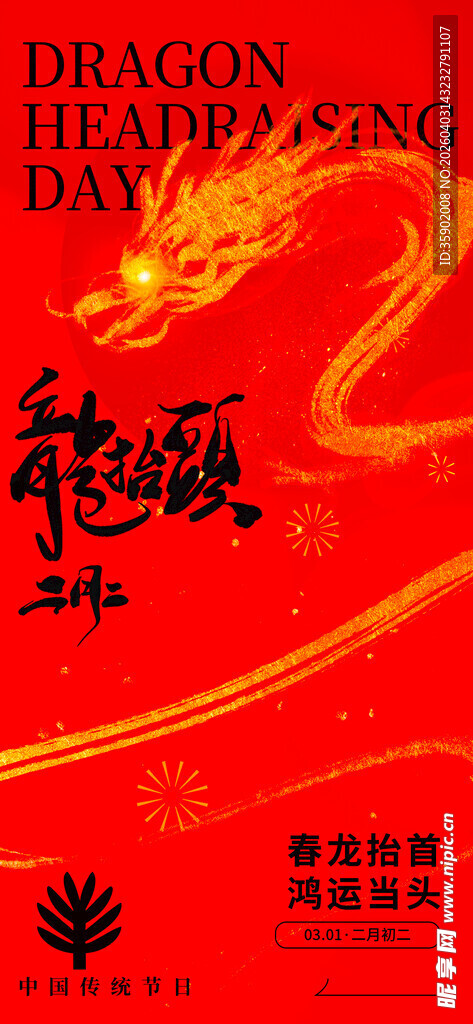 DRAGON
HEADRAISING
DAY
ID:35902008 NO:20260403143232791107
龍抬頭
二月二
春龙抬首
鸿运当头
03.01·二月初二
中国传统节日
昵享网 www.nipic.cn